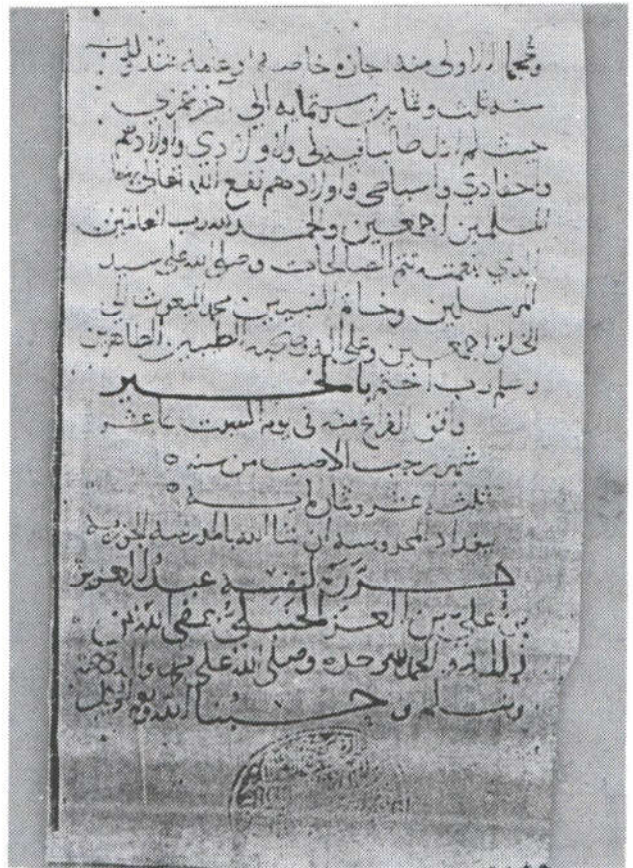 اولى منه اجازة خاصة وعامة منذ
سنه ثلث وثمانين وستمايه الي
حيث لم ازل ولاولادي واولادهم
واحفادي واسباطي واولادهم نفع الله تعالى
المسلمين اجمعين والحمد لله رب العالمين
الذي بنعمته تتم الصالحات وصلى الله على سيد
المرسلين وخاتم النبيين محمد المبعوث الى
الخلق اجمعين وعلى اله وصحبه الطيبين الطاهرين
وسلم رب اختم بالخير
وافق الفراغ منه في يوم السبت عشر
شهر رجب الاصب من سنه
ثلث عشر وثمان مايه
ببغداد المحروسه ان شا الله بالمدرسه
حرره لنفسه عبد العزيز
بن علي بن العز الحنبلي
والحمد لله وحده وصلى الله على محمد واله وصحبه
وسلم وحسبنا الله ونعم الوكيل